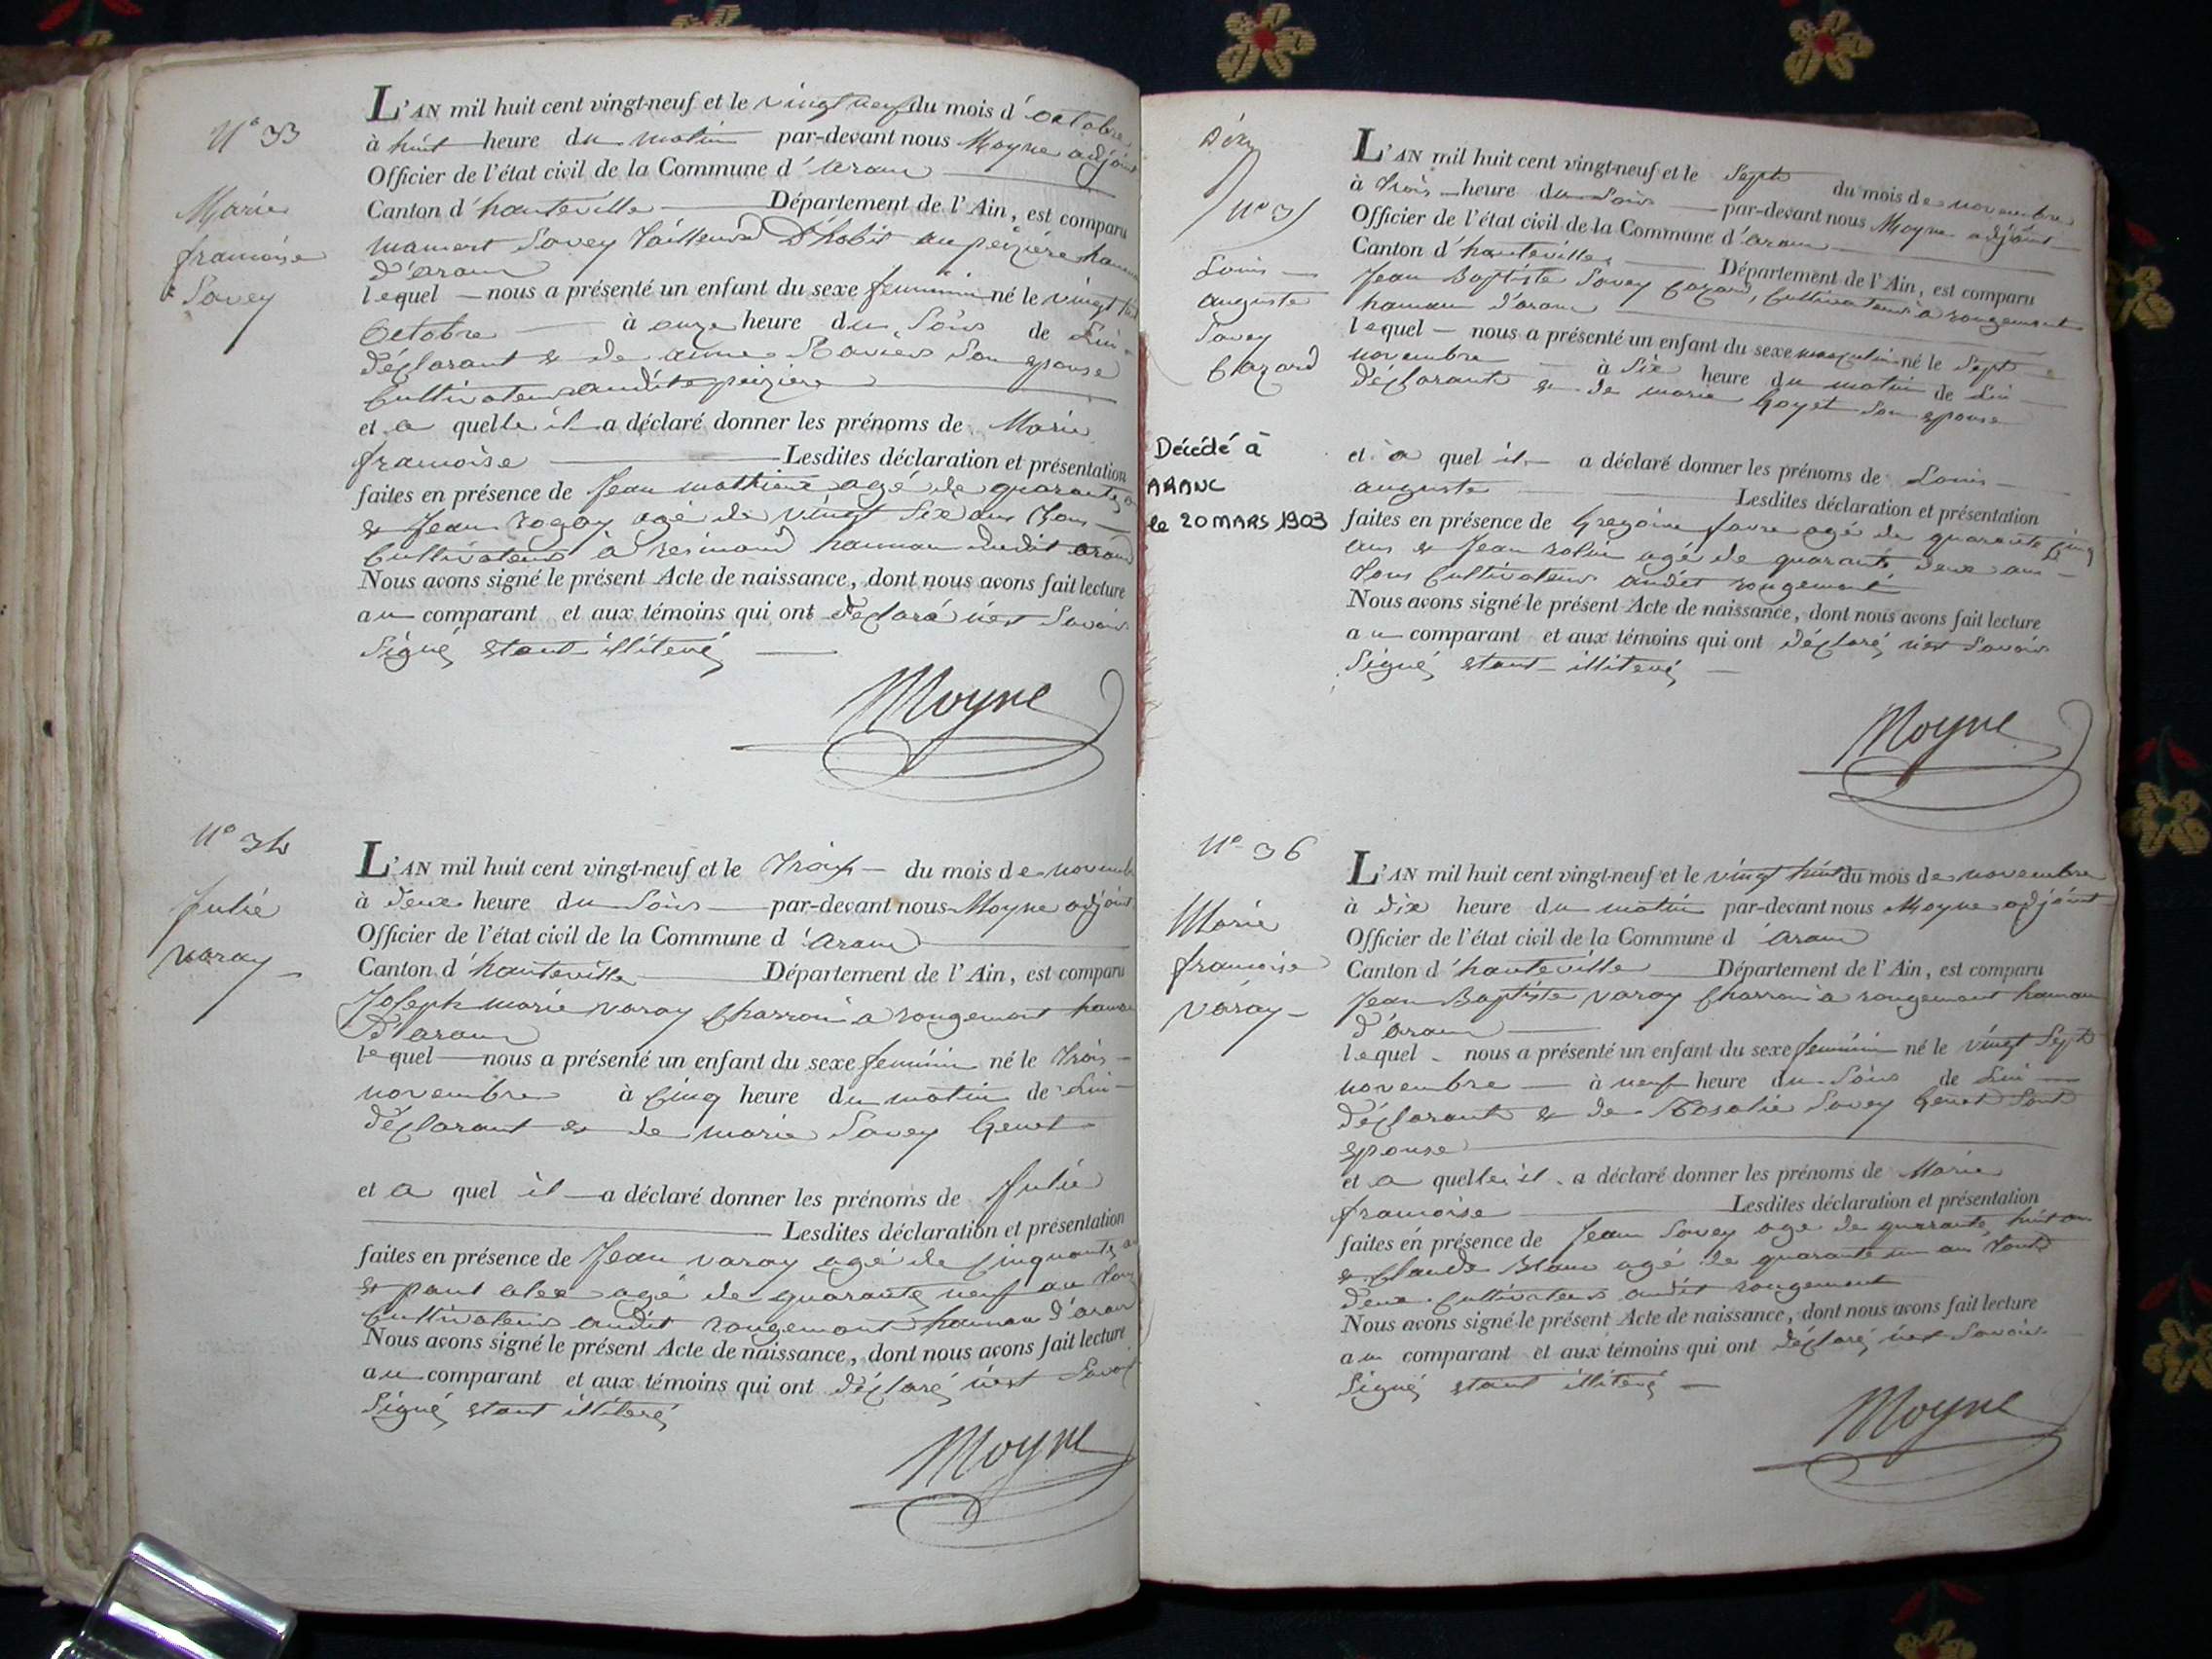 N° 33
Marie
francoise
Savey
L'AN mil huit cent vingt-neuf et le vingt neuf du mois d'octobre
à huit heure du matin par-devant nous Moyne adjoint
Officier de l'état civil de la Commune d'aranc
Canton d'hauteville Département de l'Ain, est comparu
mamert Savey Tailleur D'habit au peizière hameau
d'aranc
lequel nous a présenté un enfant du sexe feminin né le vingt
Octobre à onze heure du Soir de Lui
déclarant & de anne Ravier Son epouse
Cultivateur audit peizière
et a quelle il a déclaré donner les prénoms de Marie
francoise Lesdites déclaration et présentation
faites en présence de Jean mathieu agé de quarante
& Jean rogay agé de vingt Six ans Tous
Cultivateur à resinand hameau dudit aranc
Nous avons signé le présent Acte de naissance, dont nous avons fait lecture
au comparant et aux témoins qui ont declaré Savoir
Signé, etant illiteré
Moyne
N° 34
Julie
varay
L'AN mil huit cent vingt-neuf et le Trois du mois de novembre
à deux heure du Soir par-devant nous Moyne adjoint
Officier de l'état civil de la Commune d'aranc
Canton d'hauteville Département de l'Ain, est comparu
Joseph marie varay Charron à rougemont hameau
D'aranc
lequel nous a présenté un enfant du sexe feminin né le Trois
novembre à Cinq heure du matin de Lui
déclarant & de marie Savey Genet
et a quel il a déclaré donner les prénoms de Julie
Lesdites déclaration et présentation
faites en présence de Jean varay agé de Cinquante
& paul alee agé de quarante neuf an Tous
Cultivateur audit rougemont hameau d'aranc
Nous avons signé le présent Acte de naissance, dont nous avons fait lecture
au comparant et aux témoins qui ont déclaré Savoir
Signé etant illiteré
Moyne
N° 35
Louis
auguste
Savey
Cazard
Décédé à
ARANC
le 20 MARS 1903
L'AN mil huit cent vingt-neuf et le Sept du mois de novembre
à Trois heure du Soir par-devant nous Moyne adjoint
Officier de l'état civil de la Commune d'aranc
Canton d'hauteville Département de l'Ain, est comparu
Jean Baptiste Savey Cazard, Cultivateur à rougemont
hameau d'aranc
lequel nous a présenté un enfant du sexe masculin né le Sept
novembre à Six heure du matin de Lui
déclarant & de marie Goyet Son epouse
et a quel il a déclaré donner les prénoms de Louis
auguste Lesdites déclaration et présentation
faites en présence de Gregoire favre agé de quarante Cinq
ans & Jean rolin agé de quarante deux ans
Tous Cultivateur audit rougemont
Nous avons signé le présent Acte de naissance, dont nous avons fait lecture
au comparant et aux témoins qui ont déclaré Savoir
Signé, etant illiteré
Moyne
N° 36
Marie
francoise
varay
L'AN mil huit cent vingt-neuf et le vingt huit du mois de novembre
à dix heure du matin par-devant nous Moyne adjoint
Officier de l'état civil de la Commune d'aranc
Canton d'hauteville Département de l'Ain, est comparu
Jean Baptiste varay Charron à rougemont hameau
d'aranc
lequel nous a présenté un enfant du sexe feminin né le vingt Sept
novembre à neuf heure du Soir de Lui
déclarant & de Rosalie Savey Genet Sont
epouse
et a quelle il a déclaré donner les prénoms de Marie
francoise Lesdites déclaration et présentation
faites en présence de Jean Savey agé de quarante huit an
& Claude Blanc agé de quarante un an Tout
deux Cultivateur audit rougemont
Nous avons signé le présent Acte de naissance, dont nous avons fait lecture
au comparant et aux témoins qui ont déclaré Savoir
Signé etant illiteré
Moyne